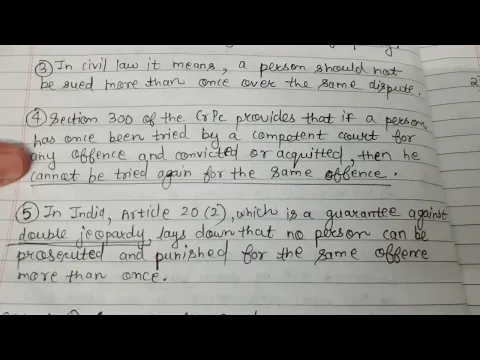 ③ In civil law it means, a person should not
be sued more than once over the same dispute.
④ Section 300 of the CrPc provides that if a person
has once been tried by a competent court for
any offence and convicted or acquitted, then he
cannot be tried again for the same offence.
⑤ In India, Article 20 (2), which is a guarantee against
double jeopardy lays down that no person can be
prosecuted and punished for the same offence
more than once.